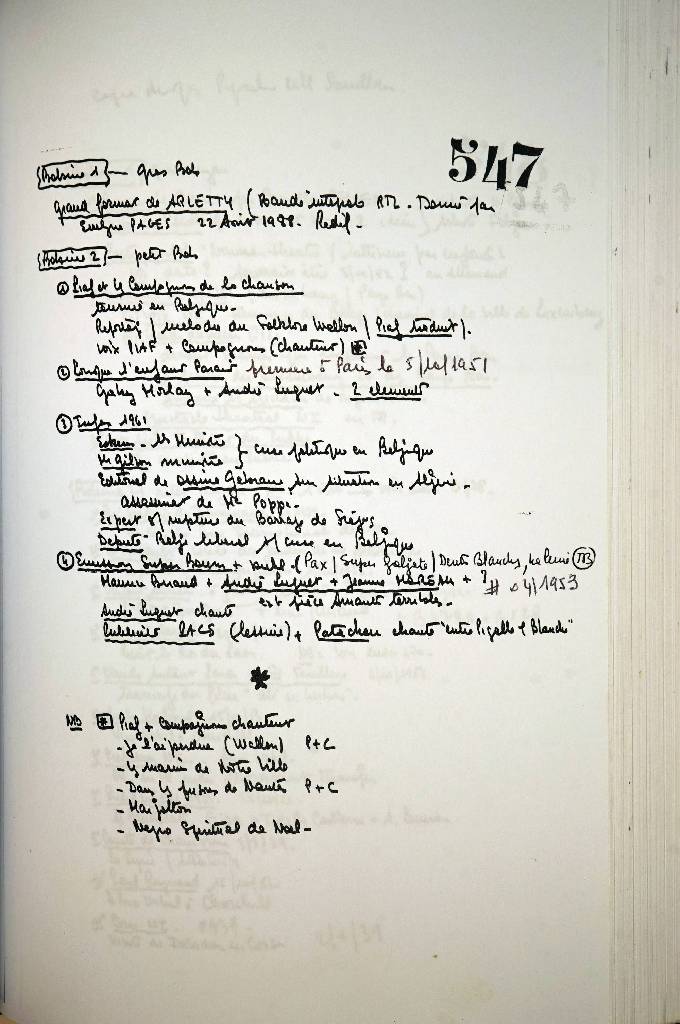 547
Bobine 1 — gros Bob
Grand format de ARLETTY (Bande intégrale RTL. Donné par
Evelyne PAGES 22 Août 1988. Redif.
Bobine 2 — petit Bob
① Piaf et les Compagnons de la chanson
tournée en Belgique.
Reportage / mélodie du Folklore Wallon / Piaf traduit).
voix PIAF + Compagnons (chanteur) #
② Lorsque l'enfant Parait première à Paris le 5/10/1951
Gaby Morlay + André Luguet. 2 éléments
③ Infos 1961
Eyskens - 1er Ministre } crise politique en Belgique
Mr Gilson ministre }
Editorial de sur situation en Algérie.
assassinat de Me Popie.
Expert s/ rupture du Barrage de
Député Belge libéral s/ crise en Belgique
④ Emission Super Boum + publ. (Pax / Super / Dents Blanches, TB
Maurice + André Luguet + Jeanne MOREAU + ? # 04/1953
est pièce Amants terribles.
André Luguet chante
LAGS (Lessive) + Patachou chante "entre Pigalle & Blanche"
*
NB # Piaf + Compagnons chanteur
- Je l'ai perdue (Wallon) P+C
- le marin de Notre Ville
- Dans les prisons de Nantes P+C
- Margoton
- Negro Spiritual de Noel -